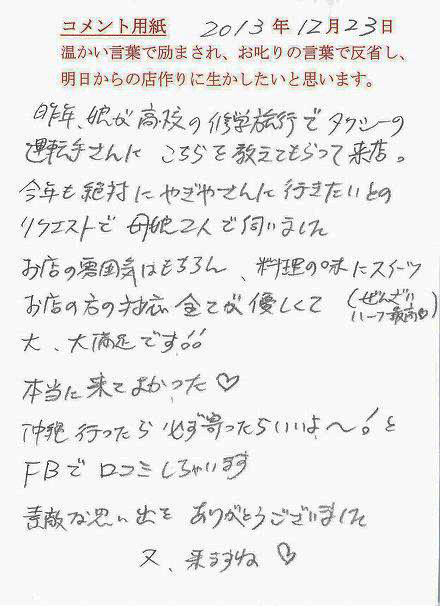 コメント用紙 2013年12月23日
温かい言葉で励まされ、お叱りの言葉で反省し、
明日からの店作りに生かしたいと思います。
昨年、娘が高校の修学旅行でタクシーの
運転手さんに こちらを教えてもらって来店。
今年も絶対にやぎやさんに行きたいとの
リクエストで 母娘2人で伺いました
お店の雰囲気はもちろん、料理の味にスイーツ
お店の方の対応 全てが優しくて (ぜんざい
ハーフ最高♡)
大、大満足です!!
本当に来てよかった♡
沖縄行ったら必ず寄ったらいいよ〜!と
FBで口コミしちゃいます
素敵な思い出を ありがとうございました
又、来ますね ♡